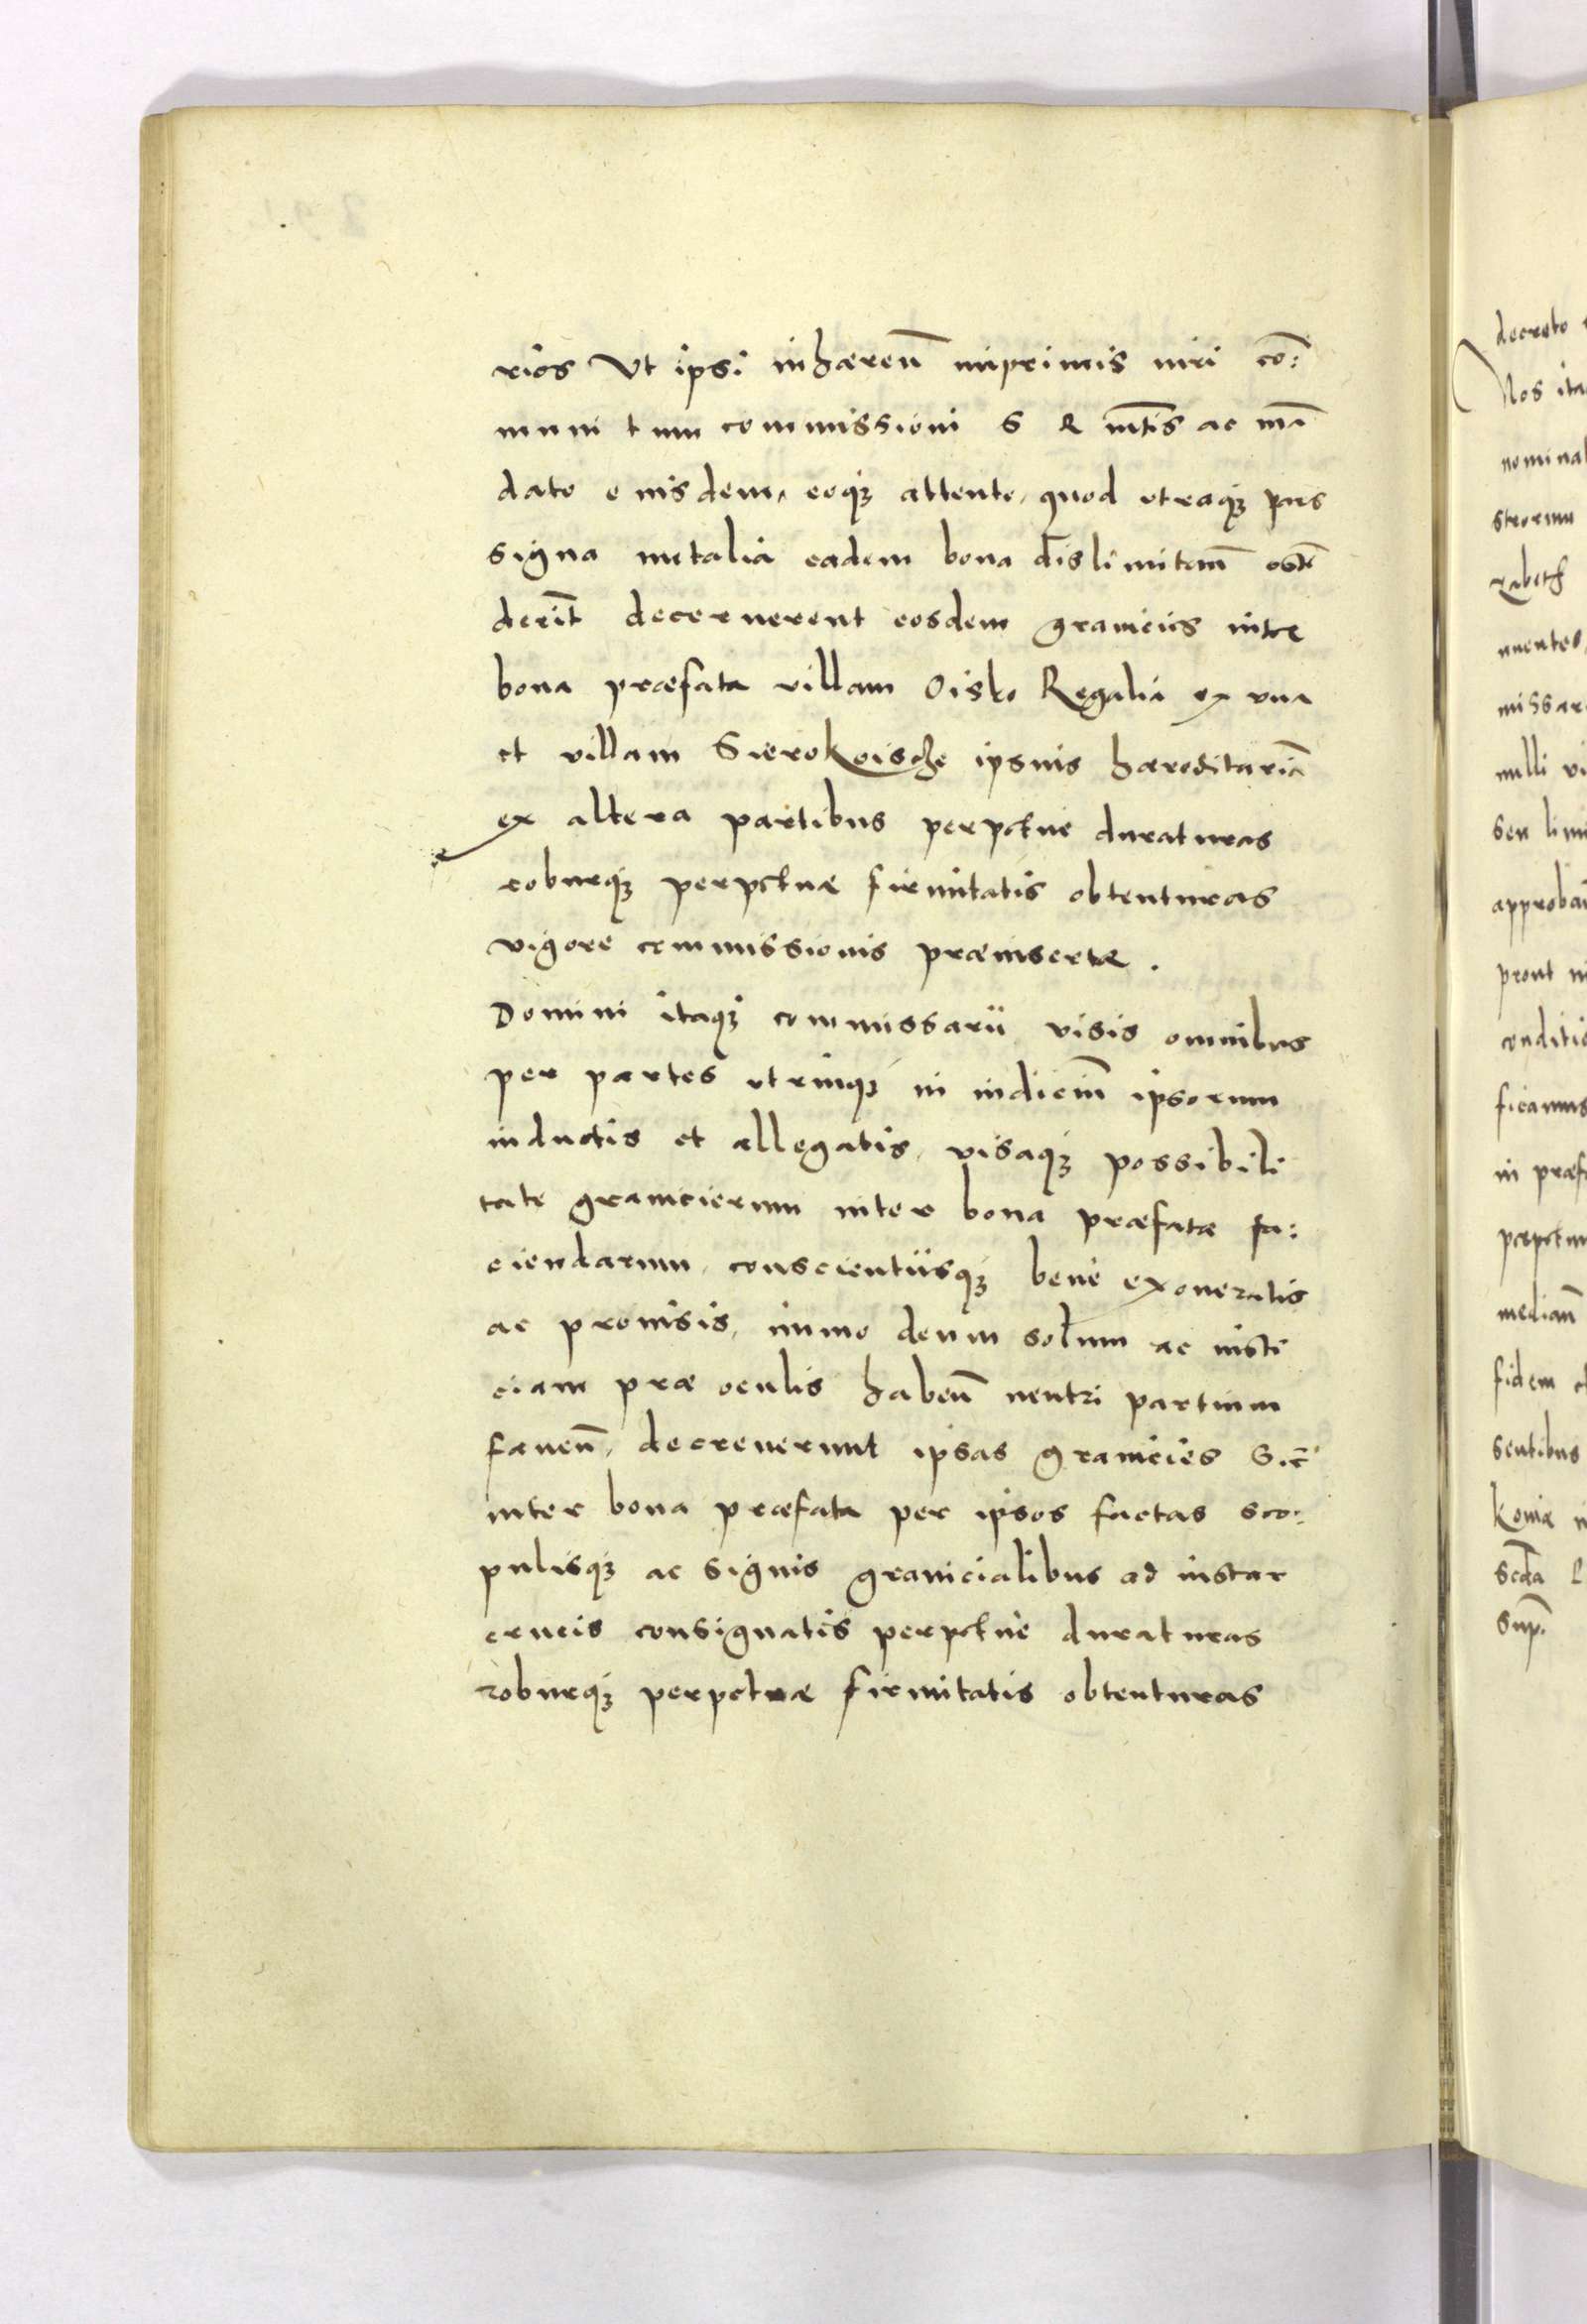 rios Vt ipsi inhæreñ inprimis iuri cõ:
muni tum commissioni S R mt̃is ac mã
dato eiusdem, eoqȝ attento, quod vtraqȝ pars
signa metalia eadem bona dislimitañ ostẽ
derit̃ decernerent eosdem granicies inter
bona præfata villam Oisko Regalia ex vna
et villam Sierokoische ipsius hæreditariã
ex altera partibus perpetue duraturas
roburqȝ perpetuæ firmitatis obtenturas
vigore commissionis præinsertæ.
Domini itaqȝ commissarii visis omnibus
per partes vtrinqȝ in iudiciũ ipsorum
inductis et allegatis, visaqȝ possibili
tate granicierum inter bona præfata fa:
ciendarum, conscientiisqȝ bene exoneratis
ac prouisis, immo deum solum ac iusti
ciam præ oculis habeñ neutri partium
faueñ, decreuerunt ipsas granicies Sic
inter bona præfata per ipsos factas sco:
pulisqȝ ac signis granicialibus ad instar
crucis consignatis perpetue duraturas
roburqȝ perpetuæ firmitatis obtenturas
decreto
Nos ita
nomina
missar
nulli vi
seu limi
approbañ
prout in
conditio
ficamus
in præf
mediañ
fidem
sentibus